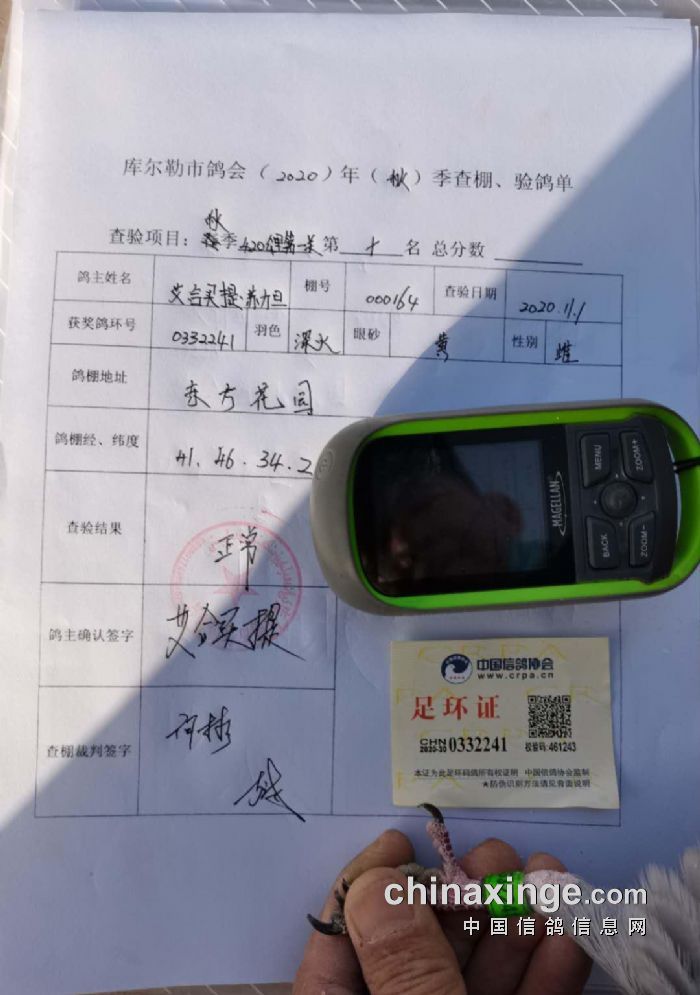 库尔勒市鸽会（2020）年（秋）季查棚、验鸽单
秋
查验项目：季420第一关第十名 总分数
鸽主姓名 艾合买提·苏力旦 棚号 000164 查验日期 2020.11.1
获奖鸽环号 0332241 羽色 深火 眼砂 黄 性别 雌
鸽棚地址 东方花园
鸽棚经、纬度 41.46.34.2
查验结果 正常
鸽主确认签字 艾合买提
查棚裁判签字
MENU
ZOOM+
BACK
ZOOM-
MAGELLAN
中国信鸽协会
www.crpa.cn
足环证
CHN
2020-30 0332241
校验码:461243
本证为此足环码鸽所有权证明 中国信鸽协会监制
★防伪识别方法请见背面说明
chinaxinge.com
中国信鸽信息网